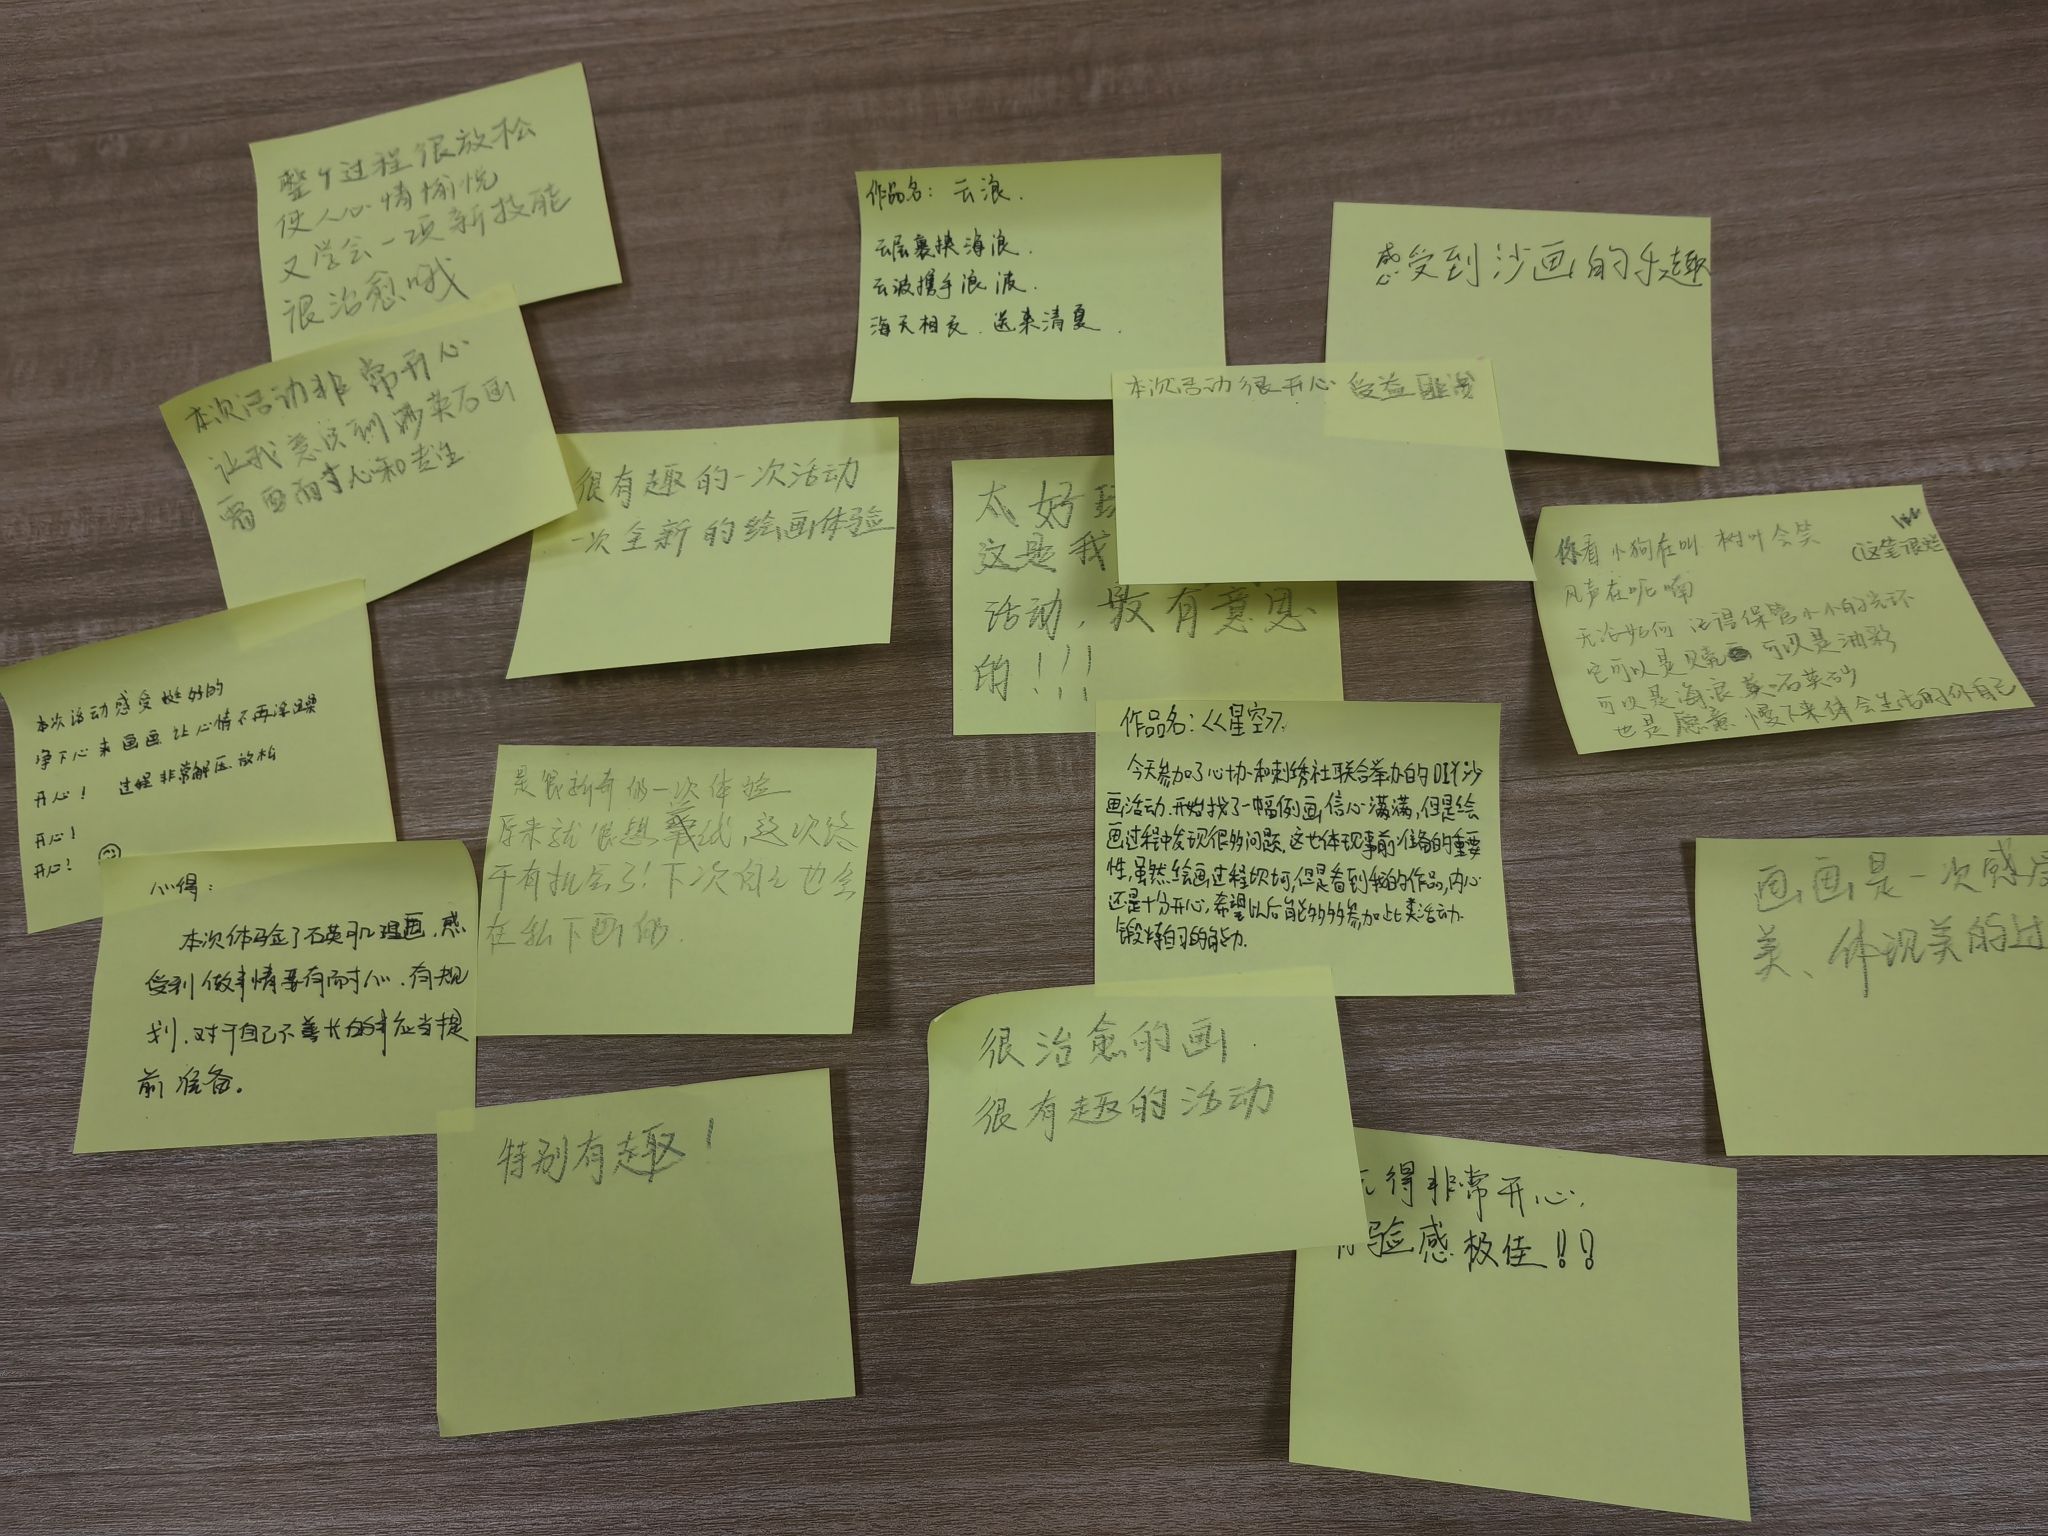 整个过程很放松
使人心情愉悦
又学会一项新技能
很治愈哦
作品名：云浪.
云层裹挟海浪.
云波携手浪波.
海天相友.送来清夏.
感受到沙画的乐趣
本次活动非常开心
让我意识到 石英石画
需要耐心和专注
很有趣的一次活动
一次全新的绘画体验
本次活动很开心 受益匪浅
太好
这是我
活动，最有意思
的!!!
你看 小狗在叫 树叶会笑
(这笔很烂
风声在呢喃
无论如何 记得保管小小的光环
它可以是贝壳 可以是油彩
可以是海浪 石英砂
也是愿意 慢下来体会生活的你自己
本次活动感受挺好的
净下心来画画 让心情不再浮躁
开心! 过程非常解压放松
开心!
开心!
是很新奇的一次体验
原来就很想 试，这次终
于有机会了!下次自己也会
在私下画的.
作品名：<<星空>>.
今天参加了心协和刺绣社联合举办的DIY沙
画活动.开始找了一幅例画,信心满满,但是绘
画过程中发现很多问题,这也体现事前准备的重要
性,虽然绘画过程坎坷,但是看到我的作品,内心
还是十分开心,希望以后能够多多参加此类活动.
锻炼自己的能力.
心得：
本次体验了石英 画,感
受到做事情要有耐心.有规
划.对于自己不善长的事应当提
前准备。
画画是一次感受
美、体现美的过
很治愈的画
很有趣的活动
特别有趣!
玩得非常开心,
体验感极佳!!!